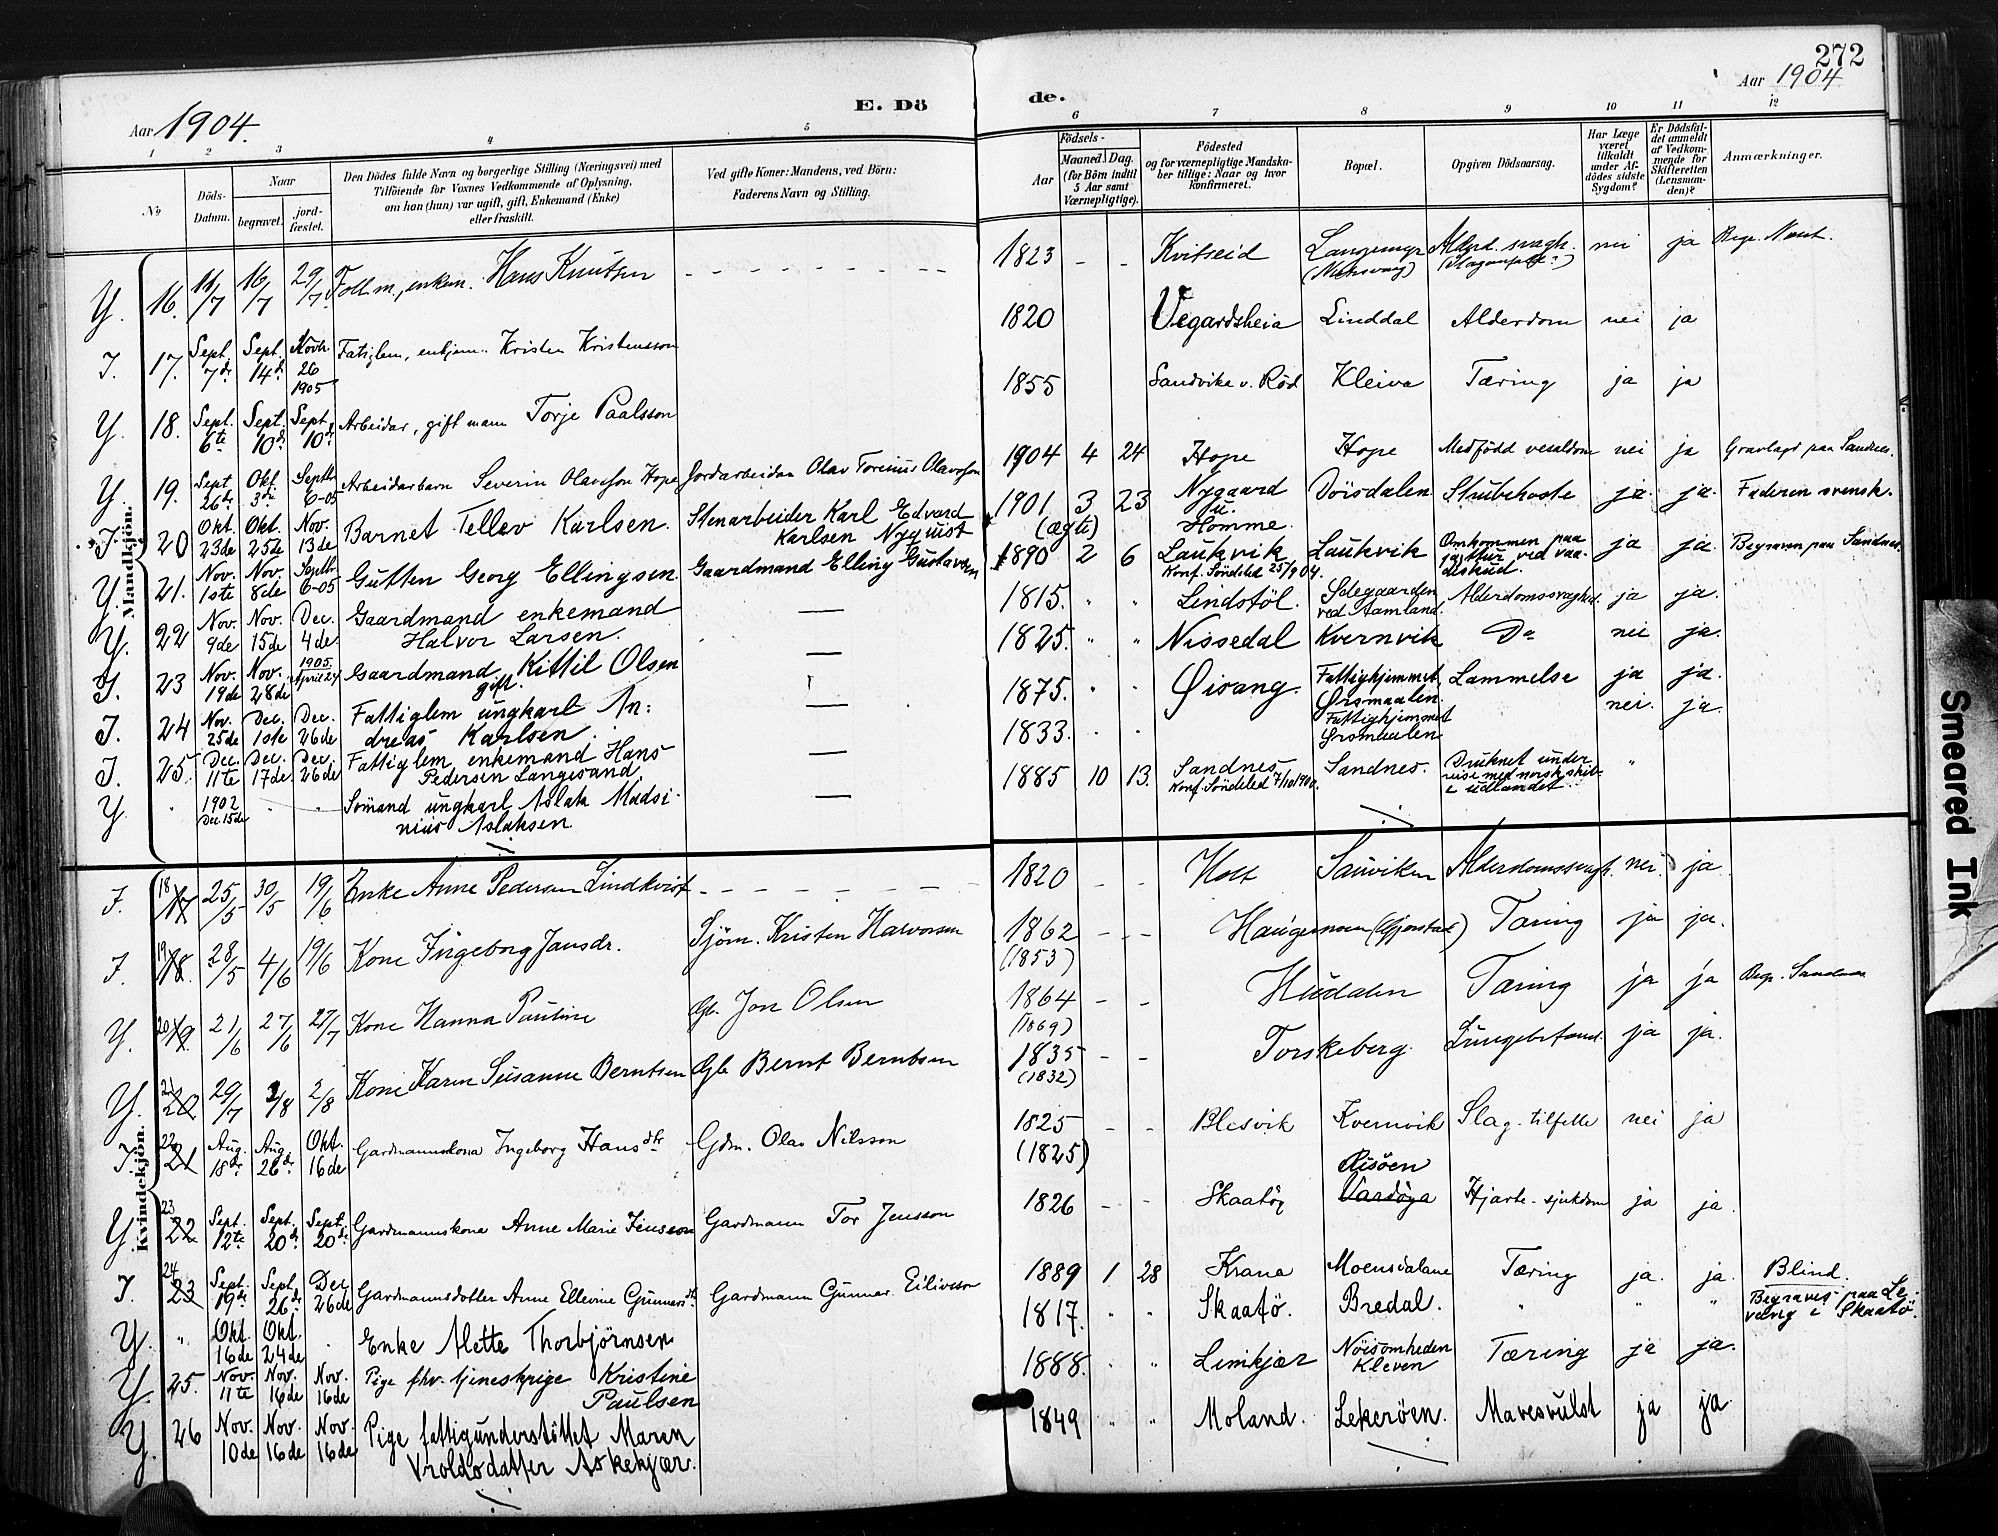 272
Aar 1904.
E. Döde.
Aar 1904
1 2 3 4 5 6 7 8 9 10 11 12
№
Döds-Datum.
Naar
begravet.
jord-fæstet.
Den Dödes fulde Navn og borgerlige Stilling (Næringsvei) med
Tilföiende for Voxnes Vedkommende af Oplysning,
om han (hun) var ugift, gift, Enkemand (Enke)
eller fraskilt.
Ved gifte Koner: Mandens, ved Börn:
Faderens Navn og Stilling.
Födsels-
Aar
Maaned. Dag.
(for Börn indtil
5 Aar samt
Værnepligtige).
Födested
og for værnepligtige Mandska-
ber tillige: Naar og hvor
konfirmeret.
Bopæl.
Opgiven Dödsaarsag.
Har Læge
været
tilkaldt
under Af-
dödes sidste
Sygdom?
Er Dödsfal-
det anmeldt
af Vedkom-
mende for
Skifteretten
(Lensman-
den)?
Anmærkninger.
Mandkjön.
Y. 16. 11/7 16/7 29/7 Hans Knutsen - - - 1823 - - Kvitseid nei ja
I. 17. Sept. 7de Sept. 14de Novbr. 26 1905 Fatiglem, enkjem. Kristen Kristensson 1820 Vegardsheia Linddal Alderdom nei ja
Y. 18. Sept. 6te Sept. 10de Sept. 10de Arbeidar, gift mann Torje Paalsson 1855 Sandvika v. Röd Kleiva Tæring ja ja
Y. 19. Sept 26de Okt. 3die Septbr. 6-05 Arbeidarbarn Severin Olavsson Hope Jordarbeidar Olav Torinius Olavsson 1904 4 24 Hope Hope Medfödd vesaldom nei ja Gravlagd paa Sandnes.
I. 20 Okt. 23de Okt. 25de Nov. 13de Barnet Tellev Karlsen. Stenarbeider Karl Edvard Karlsen Nyquist 1901 (ægte) 3 23 Nygaard u. Homme. Döisdalen Strubehoste ja. ja. Faderen svensk.
Y. 21. Nov. 1ste Nov. 8de Septbr. 6-05 Gutten Georg Ellingsen. Gaardmand Elling Gustavsen 1890 2 6 Laukvik Konf. Söndeled 25/9 04. Laukvik Omkommen paa jagttur ved vaadeskud. ja ja. Begraven paa Sandnes.
Y. 22 Nov. 9de Nov. 15de Dec. 4de Gaardmand enkemand Halvor Larsen. — 1815. " " Lindstöl. Solegaarden ved Aamland. Alderdomssvaghed. ja ja.
I. 23 Nov. 19de Nov. 28de 1905. April 24 Gaardmand gift. Kittil Olsen — 1825. " " Nissedal Kvernvik Do nei ja.
I. 24 Nov. 25de Dec. 1ste Dec. 26de Fattiglem ungkarl Andreas Karlsen. — 1875. " " Öisang. Fattighjemmet Örsmaalen Lammelse ja ja.
I. 25. Dec. 11te Dec. 17de Dec. 26de Fattiglem, enkemand Hans Pedersen Langesand. — 1833. " " Fattighjemmet Örsmaalen nei. ja.
Y " 1902 Dec. 15de " " Sömand ungkarl Aslak Madsinius Aslaksen — 1885 10 13. Sandnes Konf. Söndeled 7/10 1900. Sandnes. Druknet under reise med norsk skib i udlandet. "
Kvindekjön.
I. 18 17 25/5 30/5 19/6 Enke Anne Pedersen Lindkvist - - - 1820 - - Holt Sauviken nei. ja.
I. 19 18. 28/5 4/6 19/6 Kone Ingeborg Jansdr. Sjöm. Kristen Halvorsen 1862 (1853) - - (Gjerstad) Tæring ja ja.
Y. 20 19. 21/6 27/6 27/7 Kone Hanna Pauline Gbr. Jon Olsen 1864 (1869) - - Huddalen Tæring ja ja Begr. Sandnes
Y. 21 20 29/7 2/8 2/8 Kone Karen Susanne Berntsen Gbr Bernt Berntsen 1835 (1832) - - Torskeberg. ja ja.
I. 22 21 Aug. 18de Aug 26de Okt. 16de Gardmannskona Ingeborg Hansdtr Gdm. Olav Nilsson 1825 (1825) - - Blesvik Kvernvik Slag-tilfelle nei ja
Y 23 22 Sept. 12te Sept. 20de Sept. 20de Gardmannskona Anne Marie Jensson Gardmann Tor Jensson 1826 - - Skaatöy Risöen Vardöya Hjarte-sjukdom ja ja.
I. 24 23 Sept. 19de Sept. 26de Dec 26de Gardmannsdotter Anne Ellevine Gunnarsdtr. Gardmann Gunnar Eilivsson 1889 1 28 Krana Moensdalane Tæring ja. ja. Blind.
Y. " Okt. 16de Okt. 24de . Enke Alette Thorbjörnsen 1817. " " Skaatö. Bredal. " " " Begraves paa Levang i Skaatö.
Y. 25. Nov. 11te Nov. 16de Nov. 16de Pige fhv. tjenestpige Kristine Paulsen 1888. " " Limkjær Nöisomheden Kleven Tæring ja ja.
Y. 26 Nov. 10de Nov. 16de Nov. 16de Pige fattigunderstöttet Maren Vroldsdatter Askekjær. 1849 " " Moland. Lekeröen. Mavesvulst ja ja
Smeared Ink